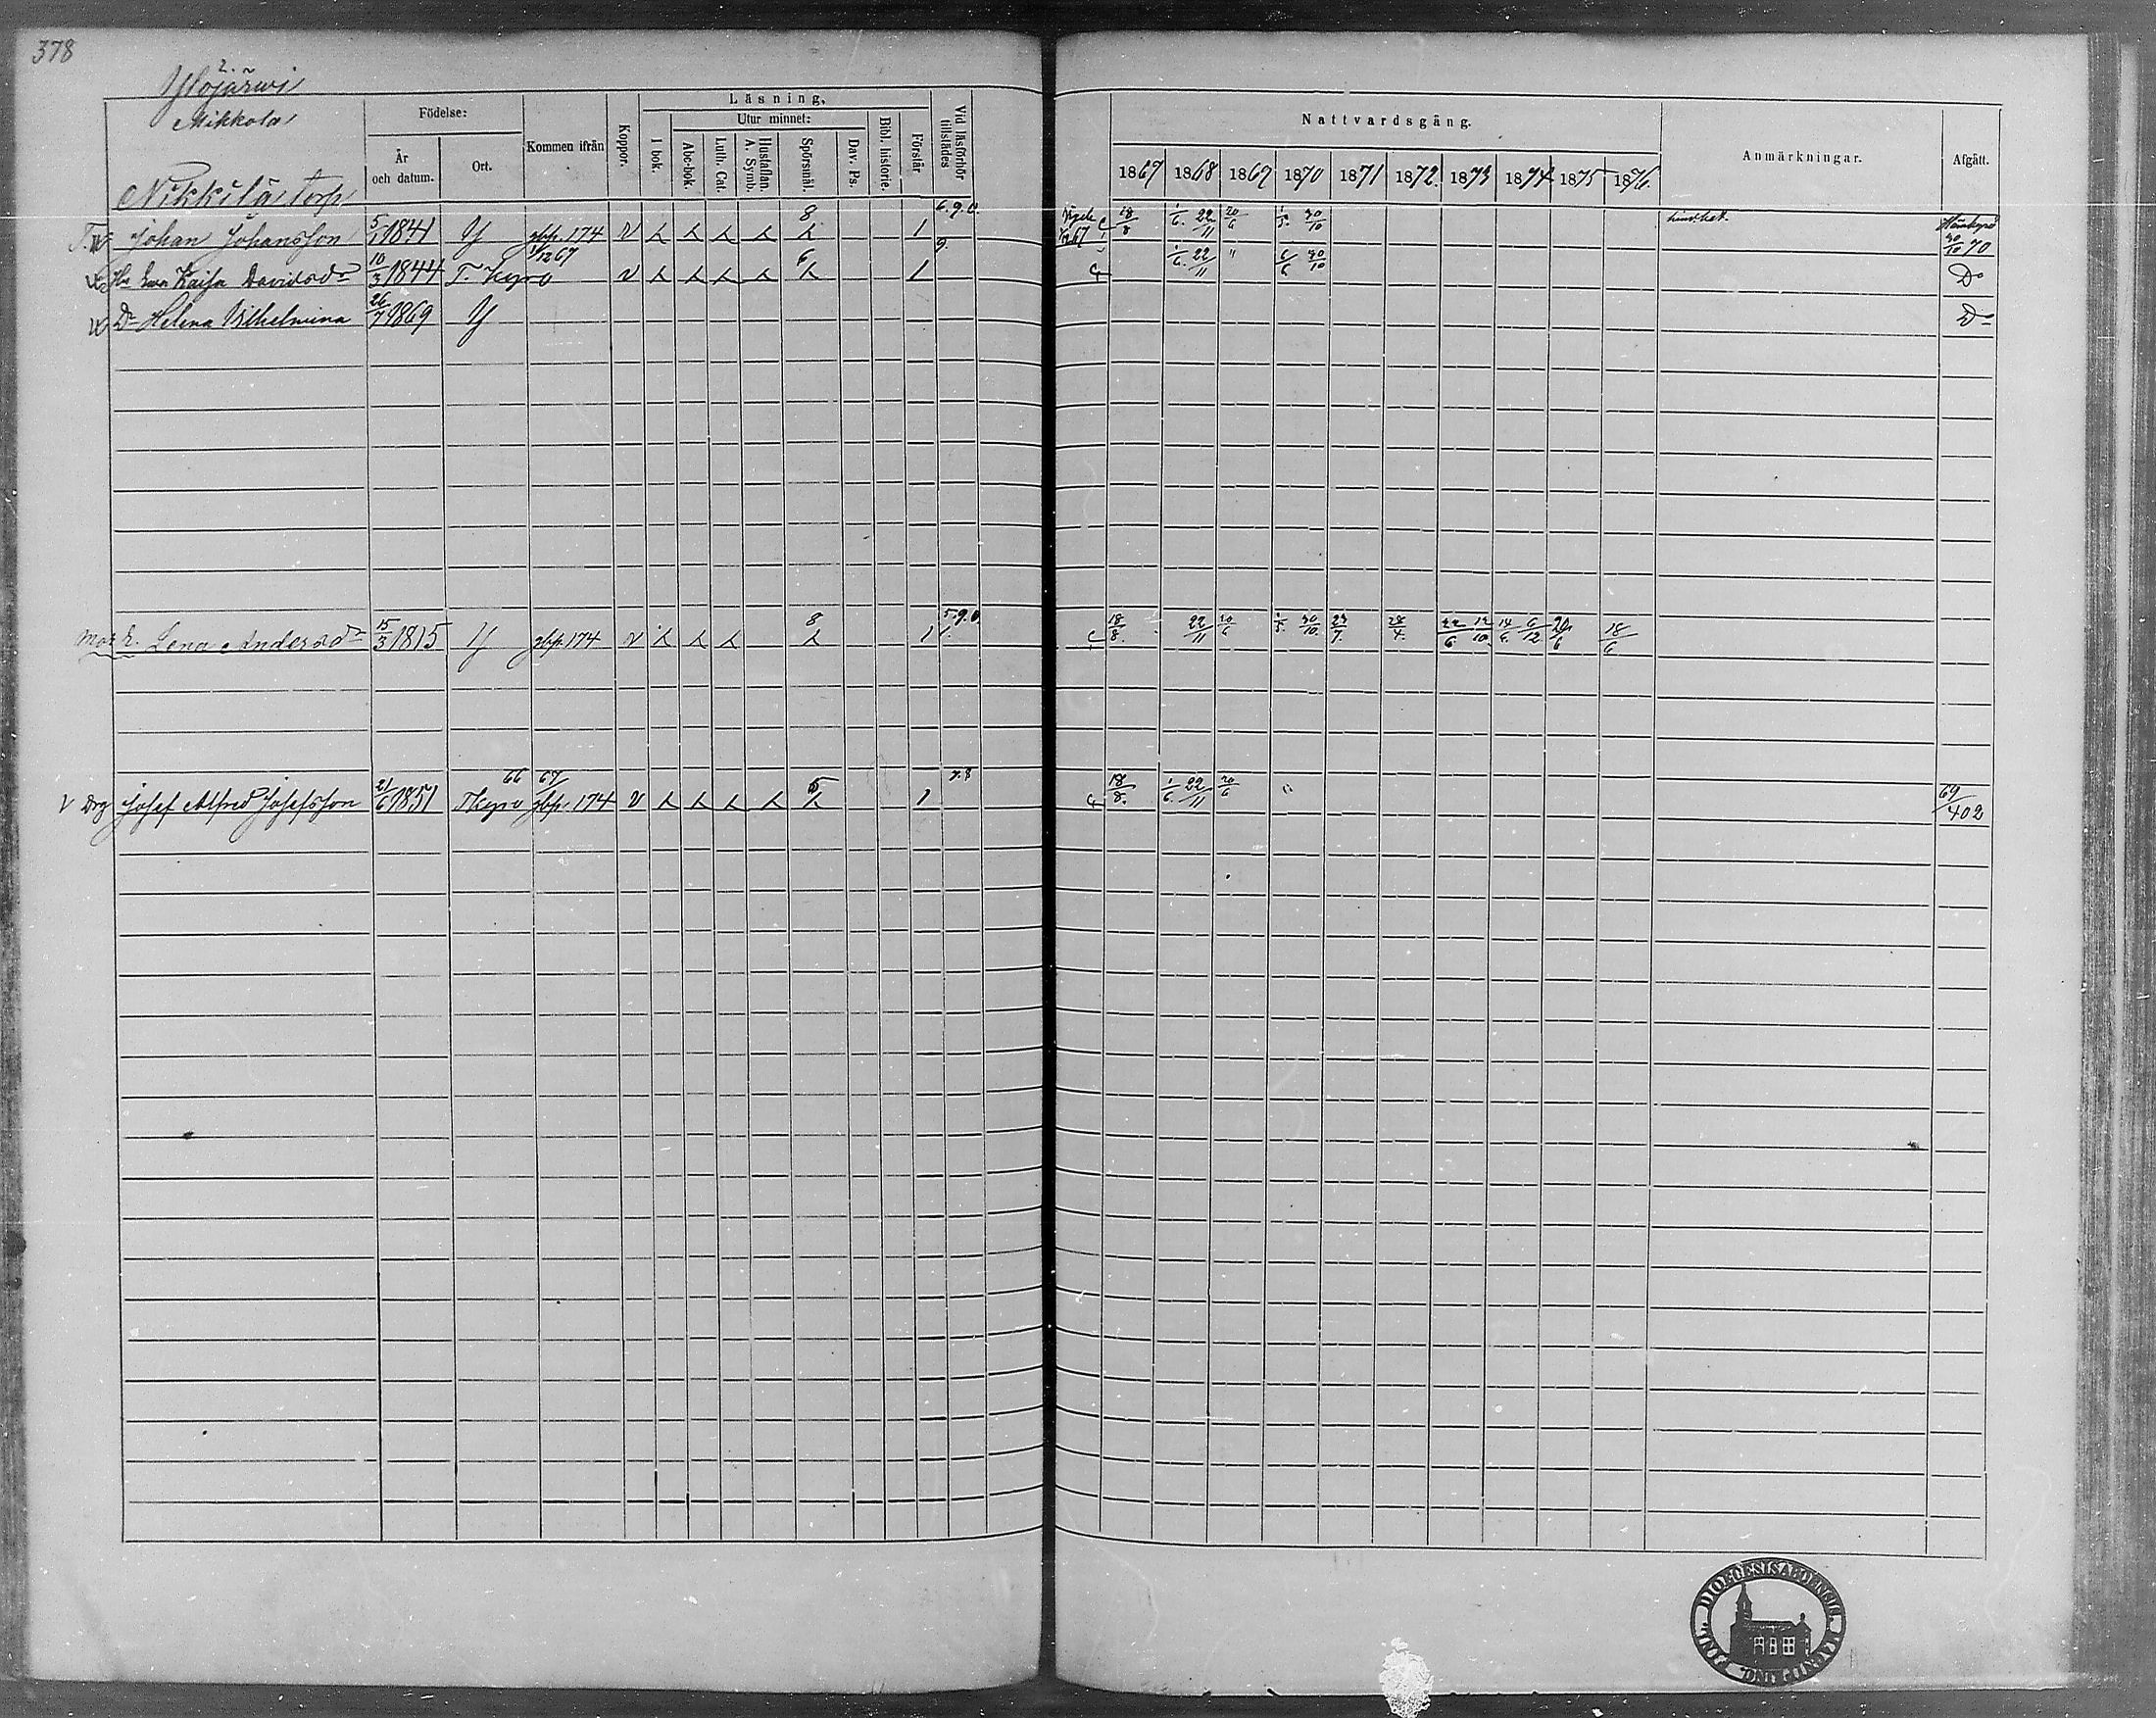 378
2.
Ylöjärwi
Mikkola
Nikkilä torp
Födelse:
År och datum.
Ort.
Kommen ifrån
Koppor.
Läsning,
I bok.
Utur minnet:
Abc-bok.
Luth. Cat.
Hustaflan. A. Symb.
Spörsmål.
Dav. Ps.
Bibl. historie.
Förstår
Vid läsförhör tillstädes
Nattvardsgång.
1867 1868 1867 1870 1871 1872 1873 1874 1875 1876
Anmärkningar.
Afgått.
Johan Johansson 5/1 1841 Y 174 8 1 6.9.0. 67 18/8 1/6. 22/11 20/6 30/10 30/10 70
Hu Ewa Kaisa Davidsdr 10/3 1844 T. Kyro 1/12 67 6 1 9. 1/6. 22/11 " 6/6 30/10 Do
Dr Helena Wilhelmina 26/7 1869 Y Do
Lena Andersdr 15/3 1815 Y 174 8 1 5.9.0 18/8. 22/11 20/6 30/10. 23/7. 28/4. 22/6 12/10. 14/6. 6/12 20/6 18/6
Drg Josef Alfred Josefsson 21/6 1851 66 Tkyro 67/ 174 5 1 7.8 18/8. 1/6. 22/11 20/6 69/402